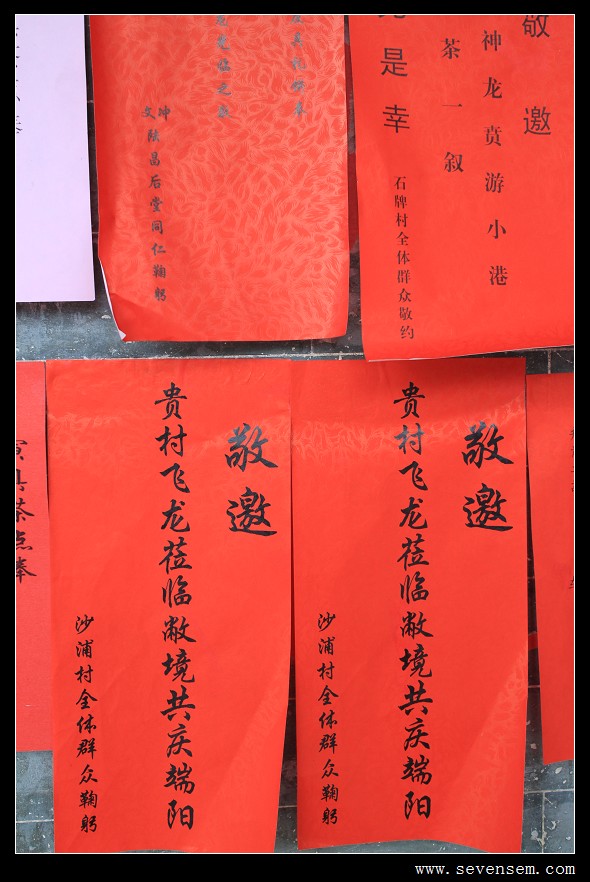 敬邀
神龙贲游小港
茶一叙
是幸
石牌村全体群众敬约
坤文
陆昌后堂同仁鞠躬
敬邀
贵村飞龙莅临敝境共庆端阳
沙浦村全体群众鞠躬
敬邀
贵村飞龙莅临敝境共庆端阳
沙浦村全体群众鞠躬
具茶点奉
www.sevensem.com